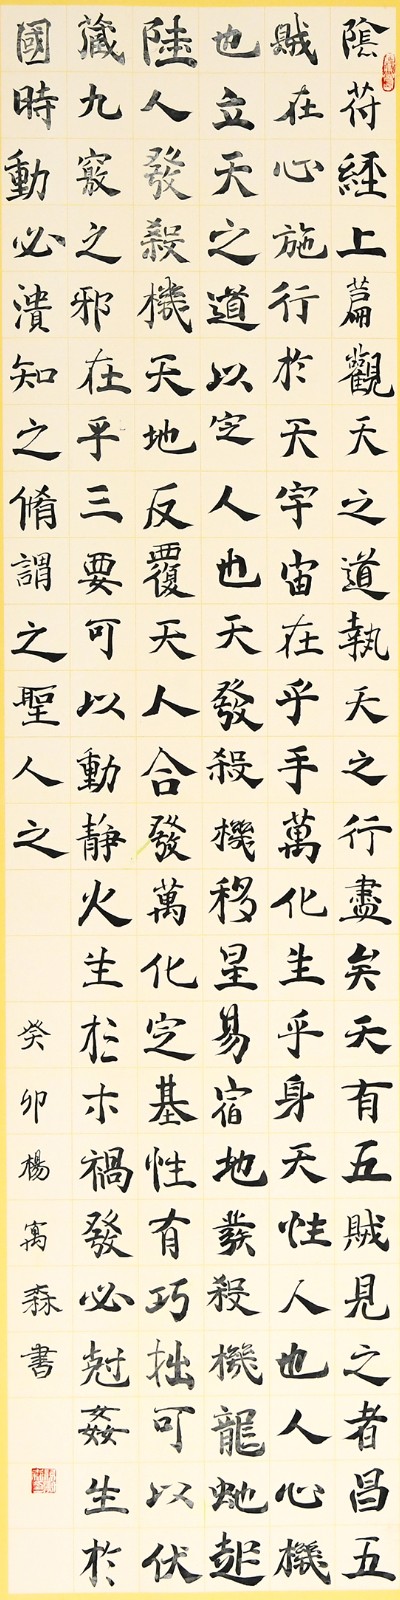 陰符經上篇觀天之道執天之行盡矣天有五賊見之者昌五
賊在心施行於天宇宙在乎手萬化生乎身天性人也人心機
也立天之道以定人也天發殺機移星易宿地發殺機龍虵起
陸人發殺機天地反覆天人合發萬化定基性有巧拙可以伏
藏九竅之邪在乎三要可以動靜火生於木禍發必尅姦生於
國時動必潰知之脩謂之聖人之
癸卯楊寓森書